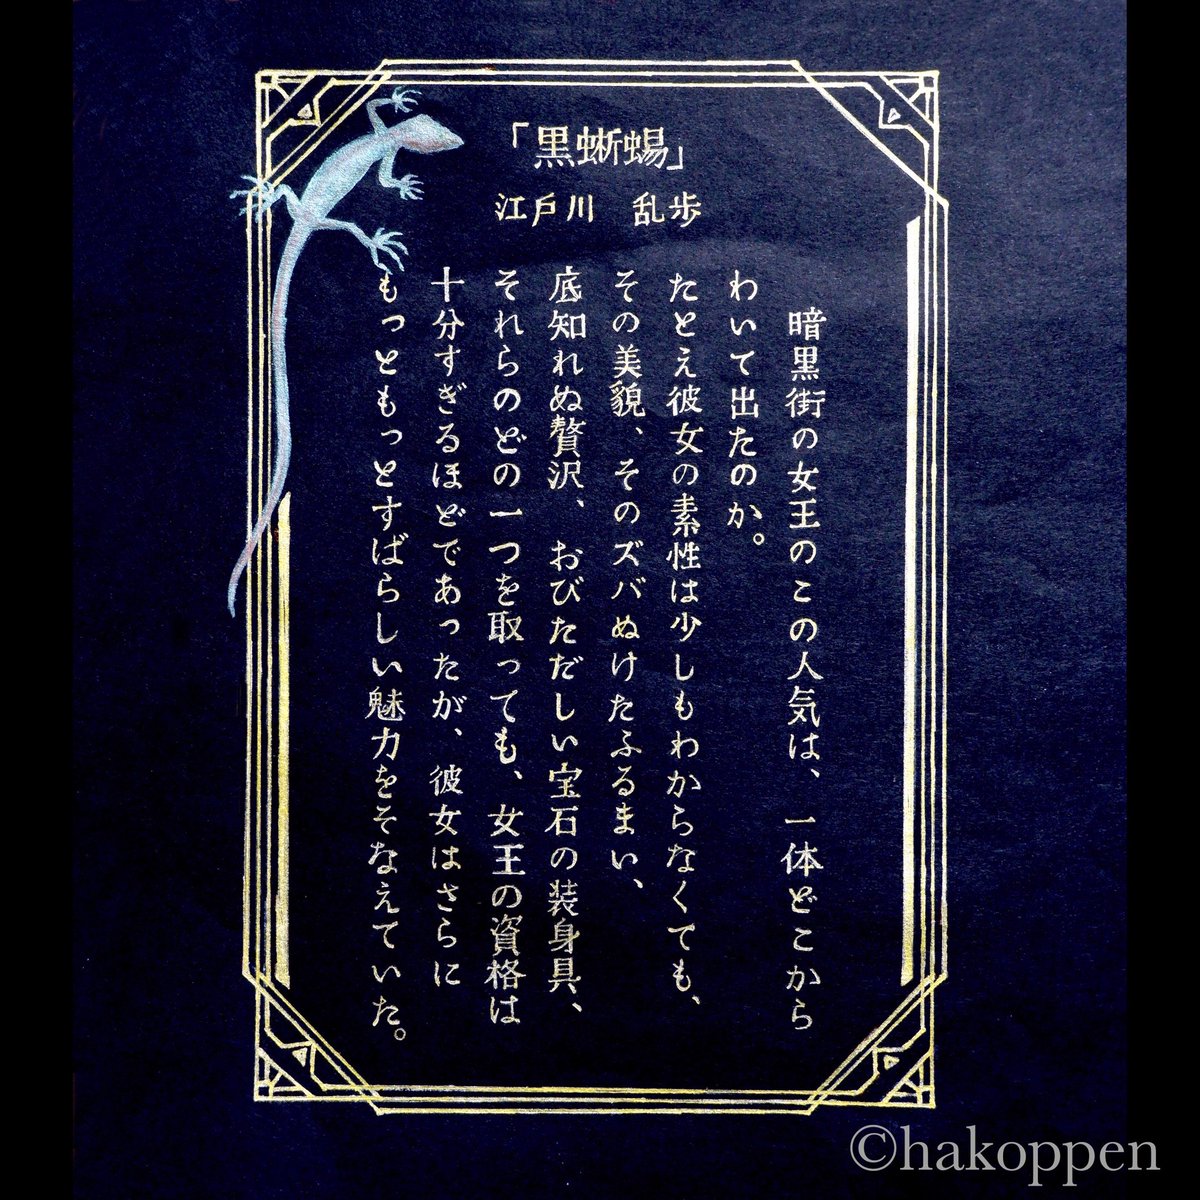 「黒蜥蜴」
江戸川　乱歩
　暗黒街の女王のこの人気は、一体どこから
わいて出たのか。
たとえ彼女の素性は少しもわからなくても、
その美貌、そのズバぬけたふるまい、
底知れぬ贅沢、おびただしい宝石の装身具、
それらのどの一つを取っても、女王の資格は
十分すぎるほどであったが、彼女はさらに
もっともっとすばらしい魅力をそなえていた。
©hakoppen